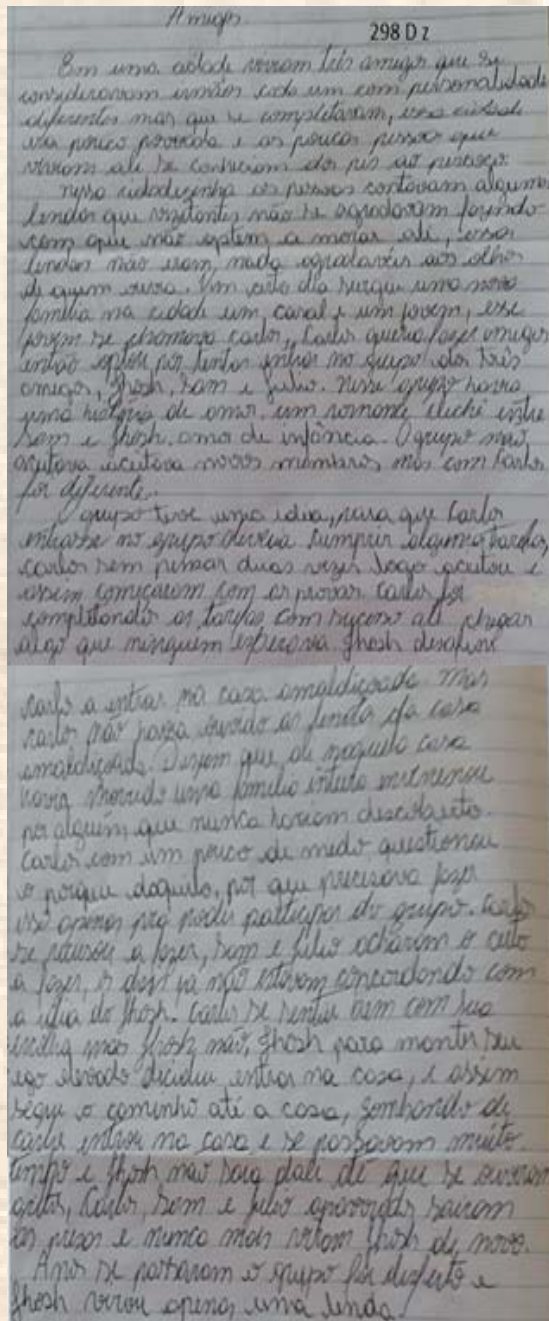 Amigos
298 D z
Em uma cidade viviam três amigos que se
consideravam irmãos cada um com personalidade
diferentes mas que se completavam, essa cidade
era pouco povoada e as poucas pessoas que
viviam ali se conheciam dos pés ao pescoço.
nessa cidadezinha as pessoas contavam algumas
lendas que vizitantes não se agradavam fazendo
com que não optem a morar ali, essas
lendas não eram, nada agradaveis aos olhos
de quem ouvia. Um certo dia surgiu uma nova
família na cidade um, casal e um jovem, esse
jovem se chamava carlos, Carlos queria fazer amigos
então optou por tentar entrar no grupo dos três
amigos, Jhosh, Sam e Julio. Nesse grupo havia
uma história de amor, um romance clichê entre
Sam e Jhosh. amor de infância. O grupo não
aceitava novos membros mas com Carlos
foi diferente.
O grupo teve uma idea, para que Carlos
entrasse no grupo deveria cumprir algumas tarefas,
carlos sem pensar duas vezes logo aceitou e
assim começaram com as provas Carlos foi
completando as tarefas com suceso até chegar
algo que ninguem esperava Jhosh desafiou
carlos a entrar na casa amaldiçoada. Mas
carlos não havia ouvido as lenda da casa
amaldiçoada. Dizem que ali naquela casa
havia morrido uma família inteira
por alguém que nunca haviam descoberto.
Carlos com um pouco de medo questionou
o porque daquilo, por que precisava fazer
isso apenas pra poder participar do grupo. Carlos
se recusou a fazer, Sam e Julio acharam o certo
a fazer, já não estavam concordando com
a idia do Jhosh. Carlos se sentiu bem com sua
escolha mas Jhosh não, Jhosh para manter seu
ego elevado decidiu entrar na casa, e assim
segiu o caminho até a casa, zombando de
carlos entrou na casa e se passavam muito
tempo e Jhosh não saia dali até que se ouviram
gritos, Carlos, Sam e Julio apavorados sairam
as presas e nunca mais viram Jhosh de novo.
Anos se passaram o grupo foi desfeito e
Jhosh virou apenas uma lenda!